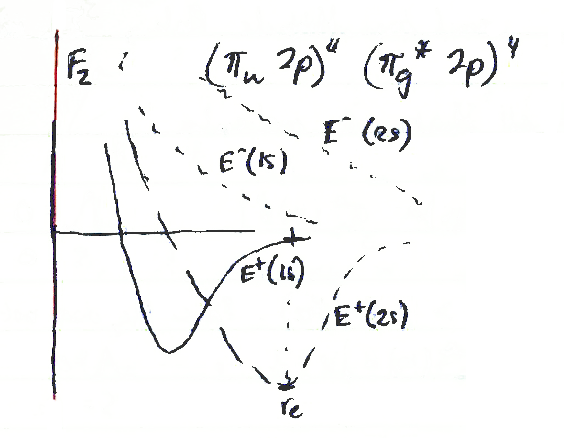 F₂ : (πᵤ 2p)⁴ (π_g* 2p)⁴
E⁻(2s)
E⁻(1s)
E⁺(1s)
E⁺(2s)
rₑ